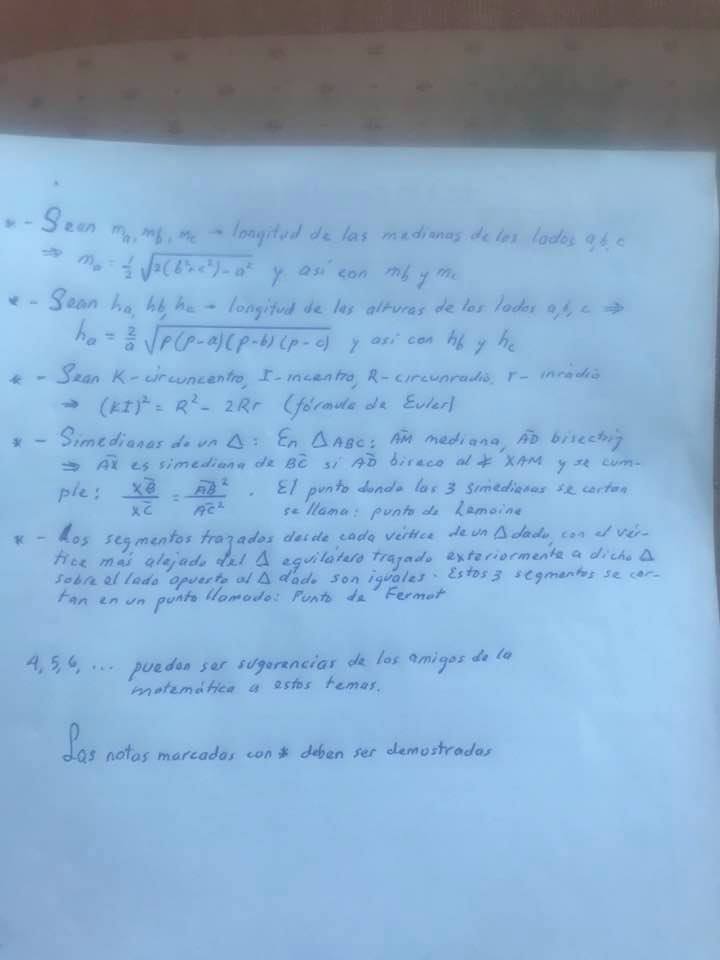 * - Sean ma, mb, mc → longitud de las medianas de los lados a, b, c
⇒ ma = 1/2 √2(b²+c²)-a² y así con mb y mc
* - Sean ha, hb, hc → longitud de las alturas de los lados a, b, c ⇒
ha = 2/a √p(p-a)(p-b)(p-c) y así con hb y hc
* - Sean K-circuncentro, I-incentro, R-circunradio, r- inradio
⇒ (KI)² = R² - 2Rr (fórmula de Euler)
* - Simedianas de un Δ: En ΔABC: AM mediana, AD bisectriz
⇒ AX es simediana de BC si AD biseca al ∢ XAM y se cum-
ple: XB/XC = AB²/AC² . El punto donde las 3 simedianas se cortan
se llama: punto de Lemoine
* - Los segmentos trazados desde cada vértice de un Δ dado, con el vér-
tice más alejado del Δ equilátero trazado exteriormente a dicho Δ
sobre el lado opuesto al Δ dado son iguales. Estos 3 segmentos se cor-
tan en un punto llamado: Punto de Fermat
4, 5, 6, ... pueden ser sugerencias de los amigos de la
matemática a estos temas.
Las notas marcadas con * deben ser demostradas